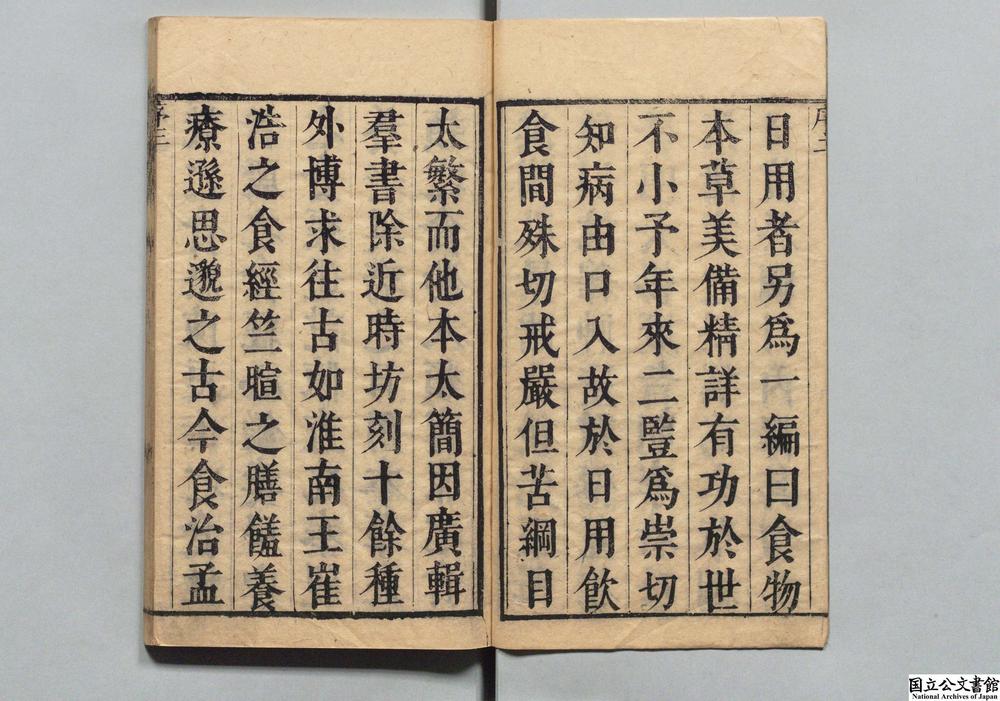 日用者另爲一編曰食物
本草美備精詳有功於世
不小予年來二豎爲祟切
知病由口入故於日用飲
食間殊切戒嚴但苦綱目
太繁而他本太簡因廣輯
羣書除近時坊刻十餘種
外博求往古如淮南王崔
浩之食經竺暄之膳饈養
療遜思邈之古今食治孟
国立公文書館
National Archives of Japan